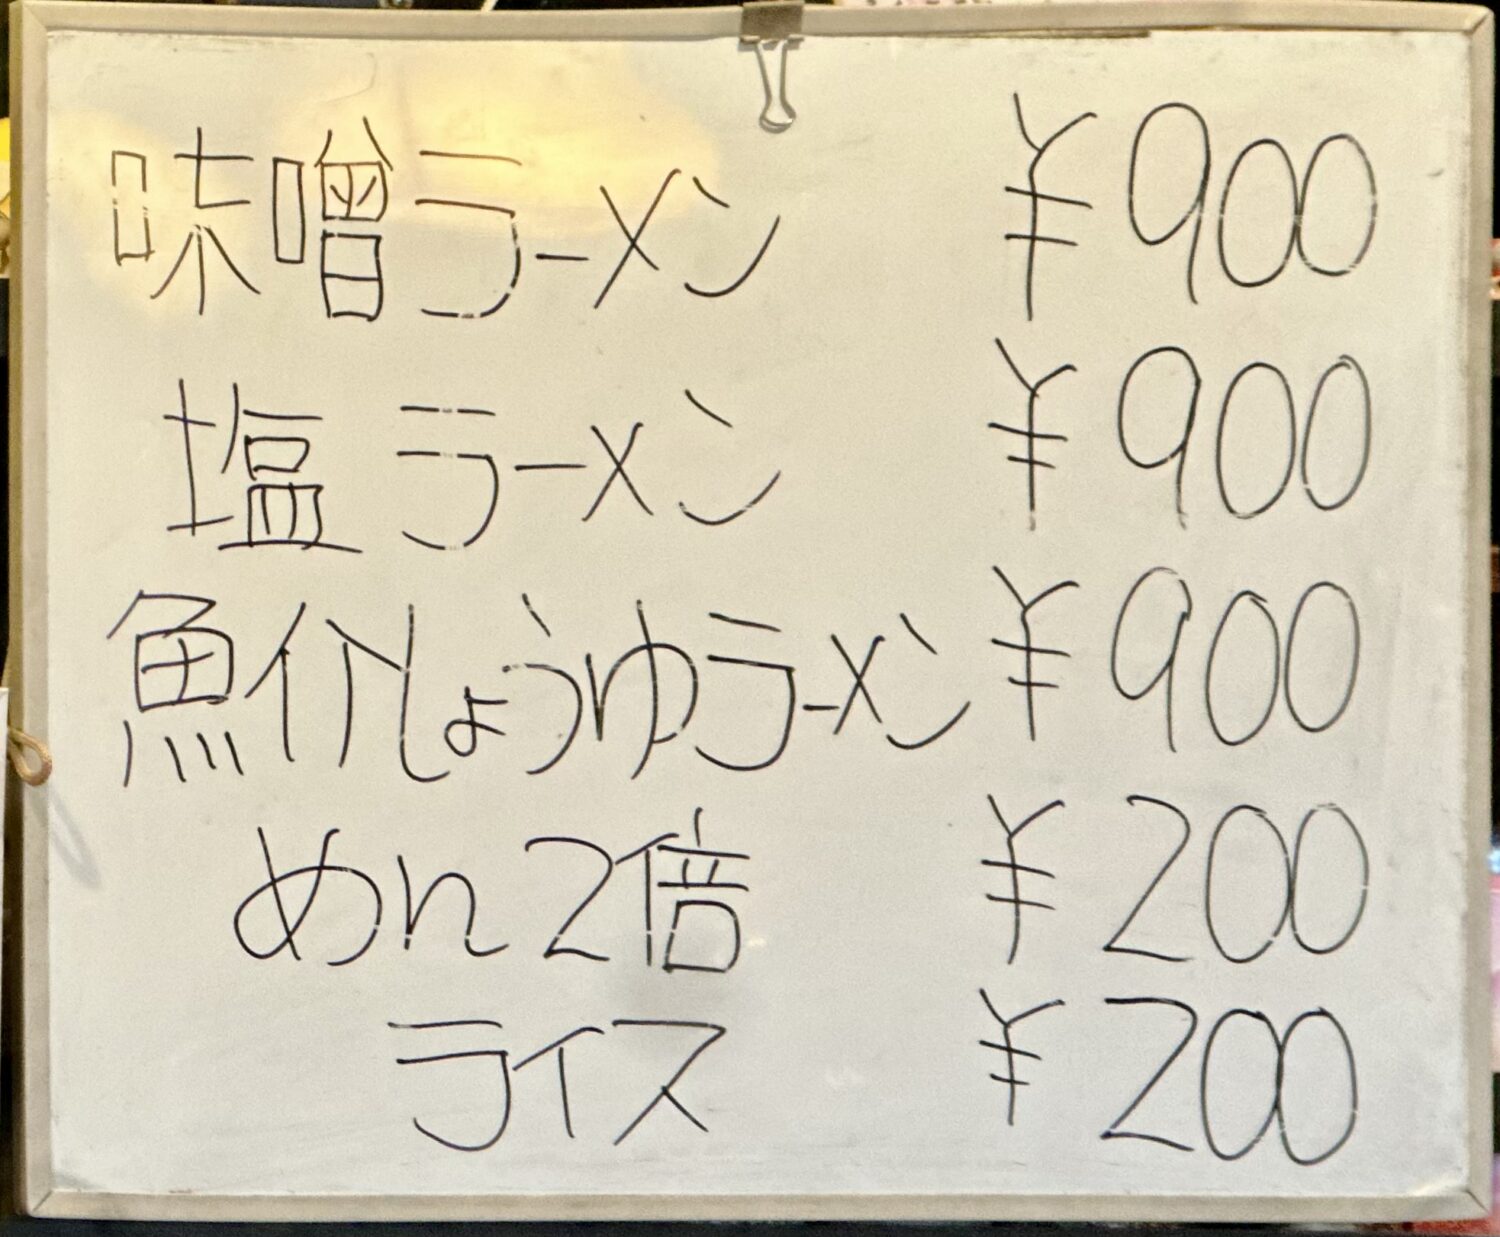 味噌ラーメン ¥900
塩ラーメン ¥900
魚介しょうゆラーメン ¥900
めん2倍 ¥200
ライス ¥200